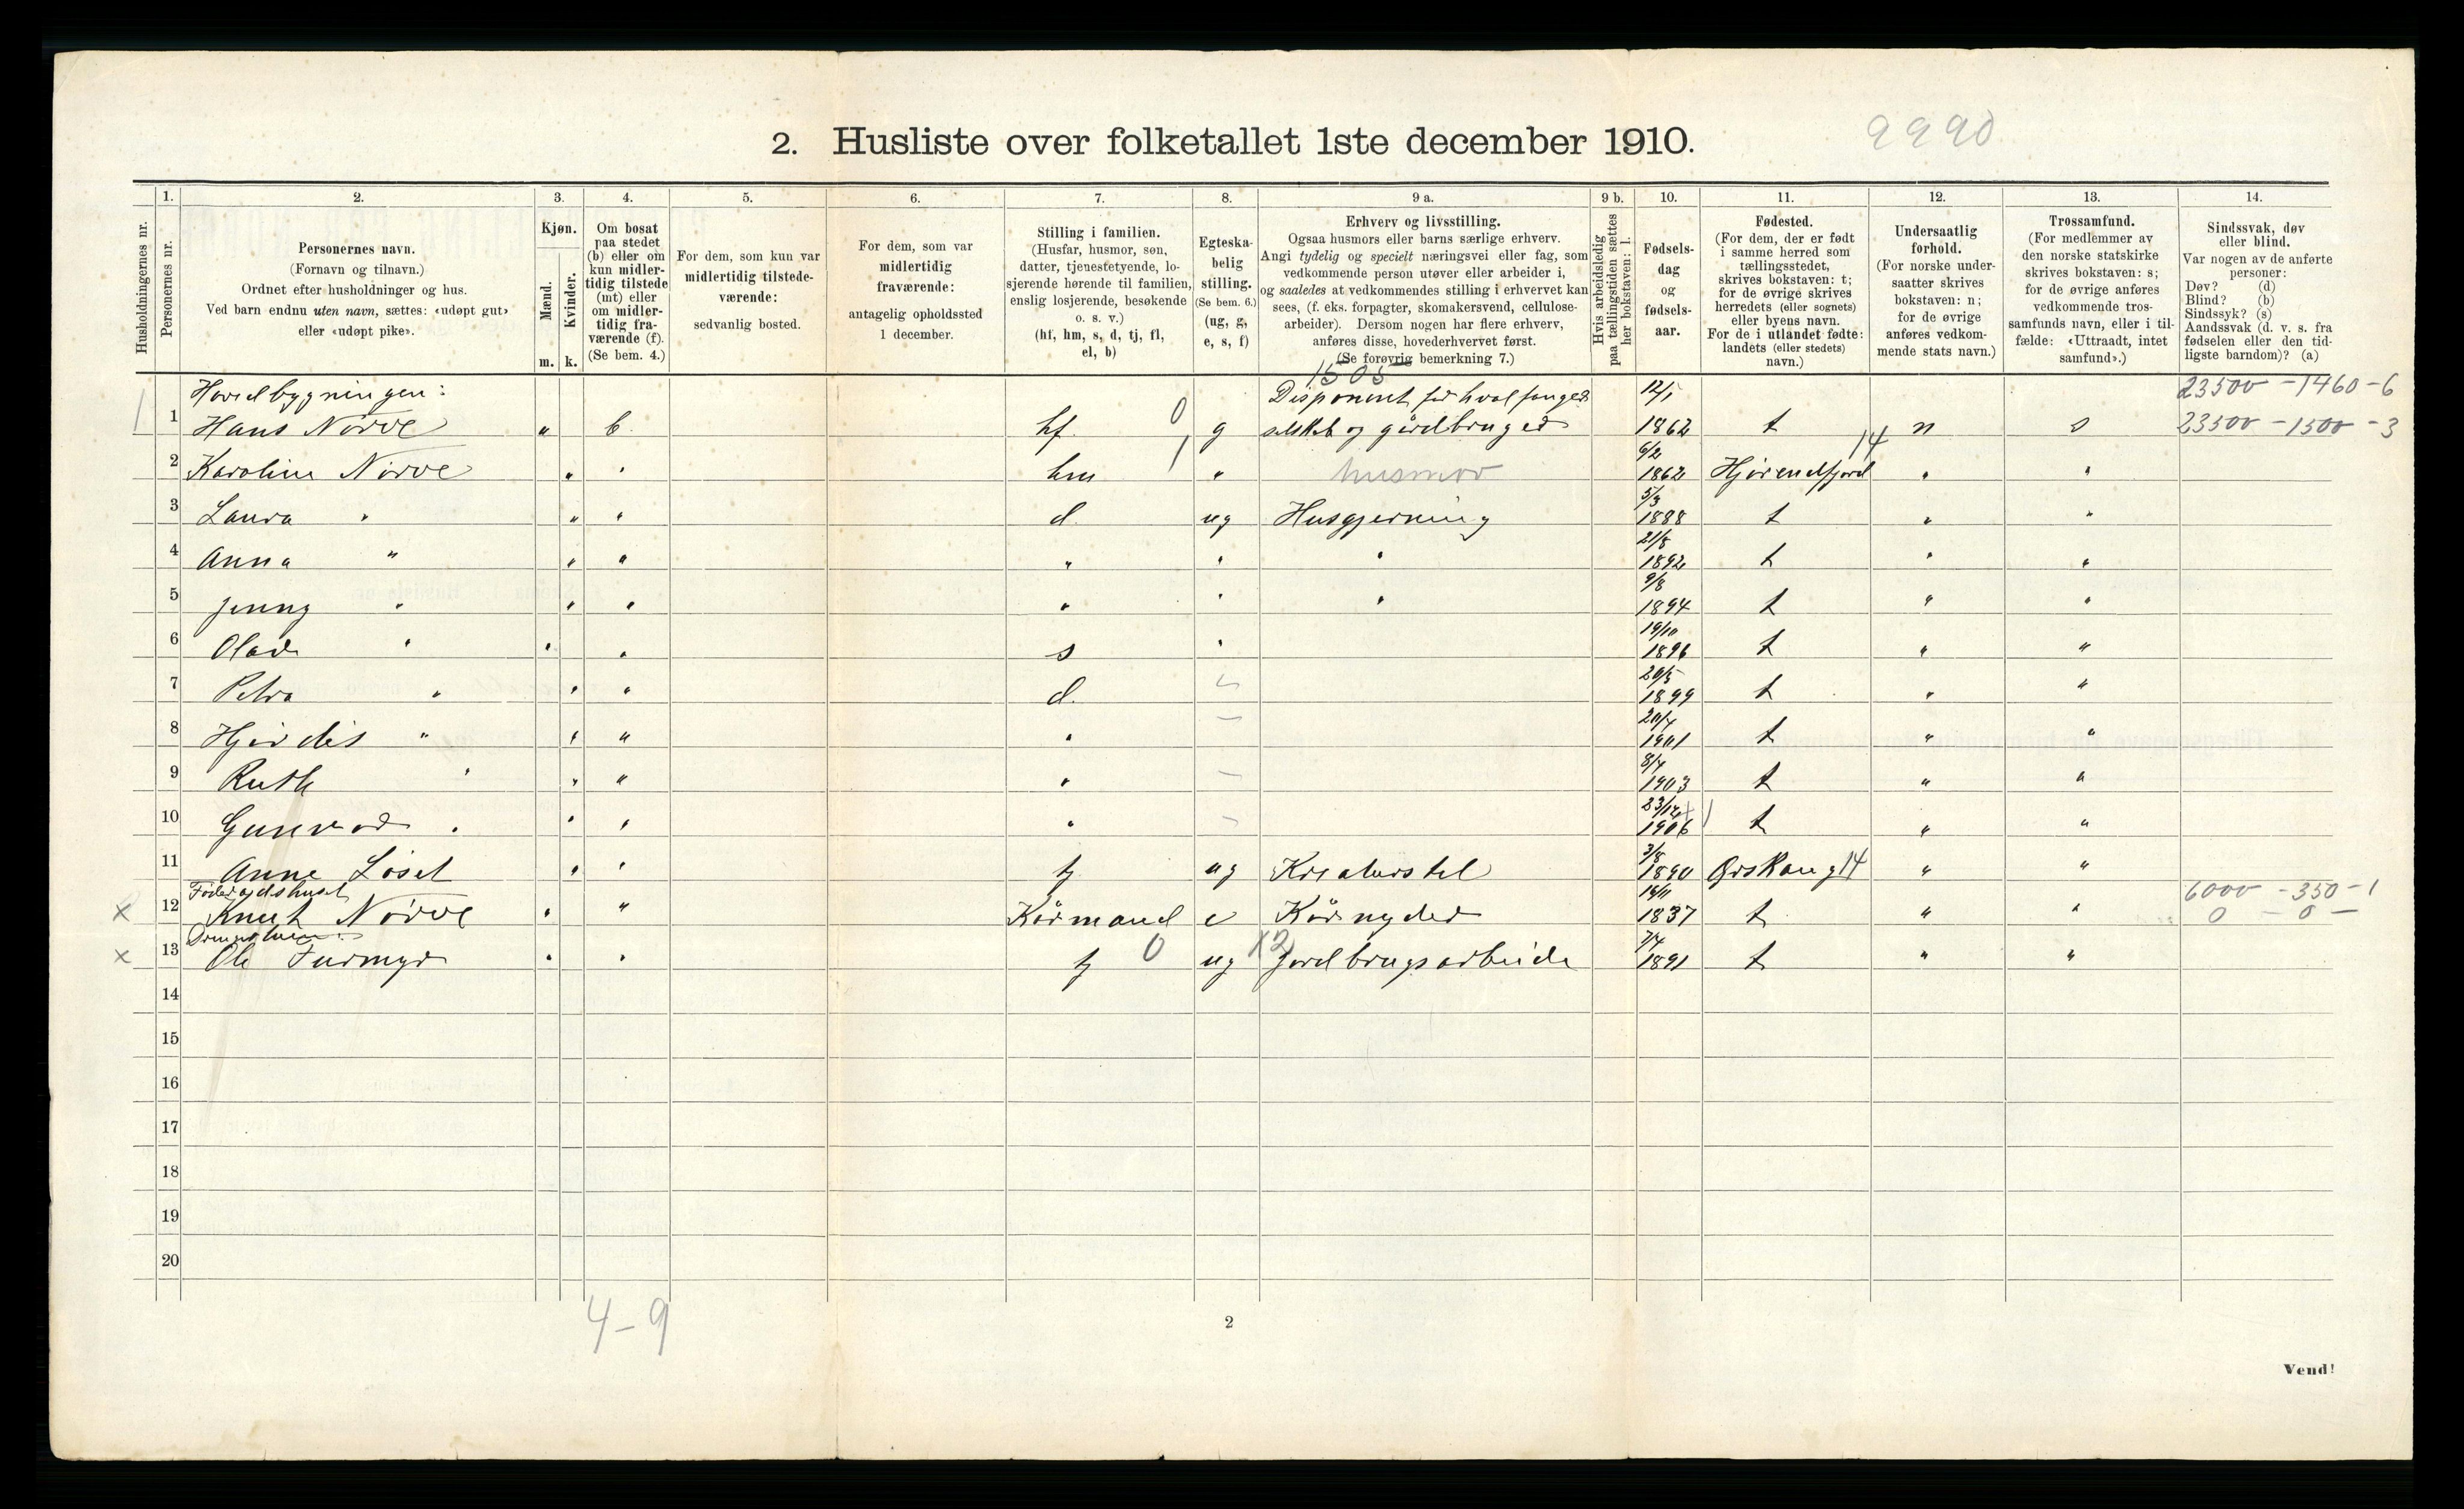 2. Husliste over folketallet 1ste december 1910.
9990
1. 2. 3. 4. 5. 6. 7. 8. 9 a. 9 b. 10. 11. 12. 13. 14.
Husholdningernes nr.
Personernes nr.
Personernes navn.
(Fornavn og tilnavn.)
Ordnet efter husholdninger og hus.
Ved barn endnu uten navn, sættes: «udøpt gut»
eller «udøpt pike».
Kjøn.
Mænd.
Kvinder.
m. k.
Om bosat
paa stedet
(b) eller om
kun midler-
tidig tilstede
(mt) eller
om midler-
tidig fra-
værende (f).
(Se bem. 4.)
For dem, som kun var
midlertidig tilstede-
værende:
sedvanlig bosted.
For dem, som var
midlertidig
fraværende:
antagelig opholdssted
1 december.
Stilling i familien.
(Husfar, husmor, søn,
datter, tjenestetyende, lo-
sjerende hørende til familien,
enslig losjerende, besøkende
o. s. v.)
(hf, hm, s, d, tj, fl,
el, b)
Egteska-
belig
stilling.
(Se bem. 6.)
(ug, g,
e, s, f)
Erhverv og livsstilling.
Ogsaa husmors eller barns særlige erhverv.
Angi tydelig og specielt næringsvei eller fag, som
vedkommende person utøver eller arbeider i,
og saaledes at vedkommendes stilling i erhvervet kan
sees, (f. eks. forpagter, skomakersvend, cellulose-
arbeider). Dersom nogen har flere erhverv,
anføres disse, hovederhvervet først.
(Se forøvrig bemerkning 7.)
Hvis arbeidsledig
paa tællingstiden sættes
her bokstaven: l.
Fødsels-
dag
og
fødsels-
aar.
Fødested.
(For dem, der er født
i samme herred som
tællingsstedet,
skrives bokstaven: t;
for de øvrige skrives
herredets (eller sognets)
eller byens navn.
For de i utlandet fødte:
landets (eller stedets)
navn.)
Undersaatlig
forhold.
(For norske under-
saatter skrives
bokstaven: n;
for de øvrige
anføres vedkom-
mende stats navn.)
Trossamfund.
(For medlemmer av
den norske statskirke
skrives bokstaven: s;
for de øvrige anføres
vedkommende tros-
samfunds navn, eller i til-
fælde: «Uttraadt, intet
samfund».)
Sindssvak, døv
eller blind.
Var nogen av de anførte
personer:
Døv? (d)
Blind? (b)
Sindssyk? (s)
Aandssvak (d. v. s. fra
fødselen eller den tid-
ligste barndom)? (a)
1505
Hovedbygningen: Disponent for hvalfanger 12/1 23500 - 1460 - 6
1 1 Hans Nørve " b hf. 0 g selskab og gårdbruger 1862 t n s 23500 - 1500 - 3
2 Karoline Nørve " " hm 1 " husmor 6/2 1862 Hjørendfjord 14 " "
3 Laura " " " d. ug Husgjerning 5/3 1888 t " "
4 Anna " " " " " " 21/8 1892 t " "
5 Jenny " " " " " " 9/8 1894 t " "
6 Olav " " " s " 19/10 1896 t " "
7 Petra " " " d. 20/5 1899 t " "
8 Hjørdis " " " " – 20/4 1901 t " "
9 Ruth " " " " – 8/4 1903 t " "
10 Gunvor " " " " – 23/12 1906 t " "
11 Anne Løset " " tj ug Kreaturstel 3/8 1890 Ørskaug 14 " "
Føderaadshuset 6000 - 350 - 1
x 12 Knut Nørve " " Kårmand e Kårnyder 16/11 1837 t " " 0 - 0 -
x 13 Ole Furmyr " " tj 0 ug x2 Jordbrugsarbeide 7/4 1891 t " "
14
15
16
17
18
19
20
4-9
2
Vend!